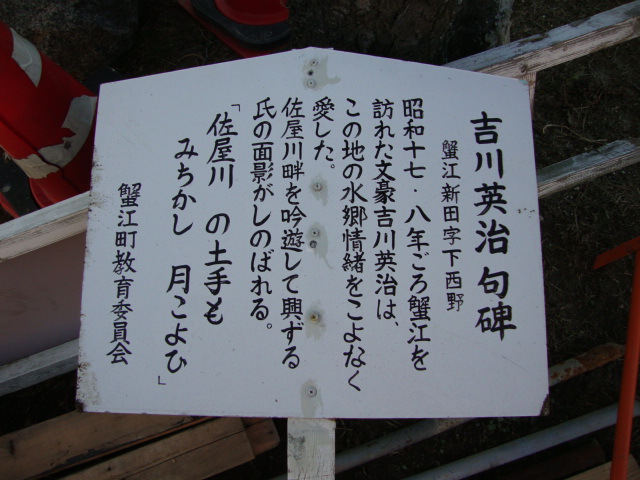 吉川英治句碑
蟹江新田字下西野
昭和十七・八年ごろ蟹江を
訪れた文豪吉川英治は、
この地の水郷情緒をこよなく
愛した。
佐屋川畔を吟遊して興ずる
氏の面影がしのばれる。
「佐屋川 の土手も
みちかし 月こよひ」
蟹江町教育委員会